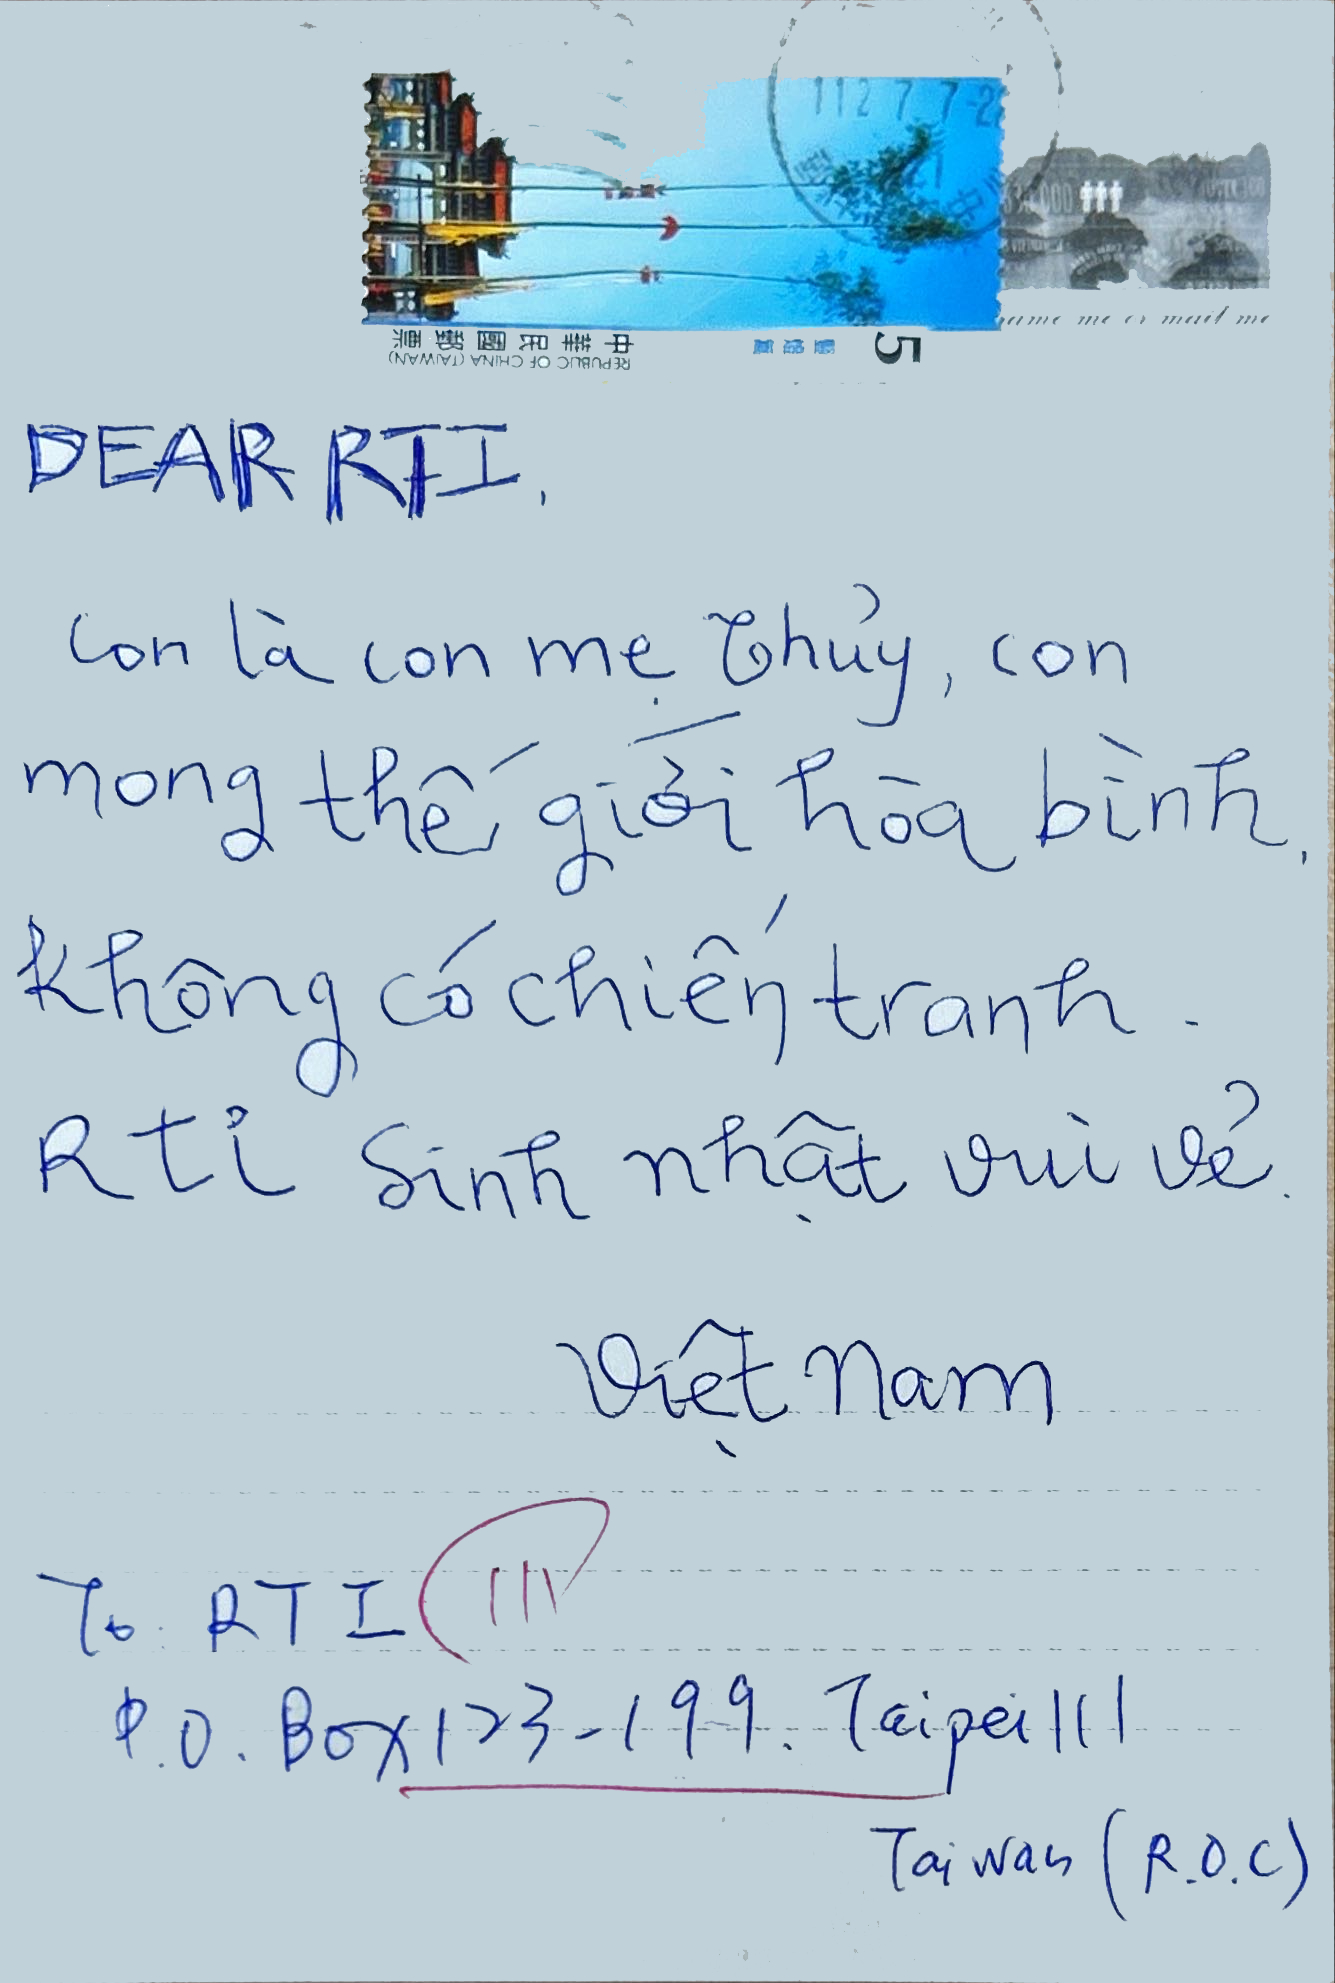 112 7 7-2
中華民國郵票
REPUBLIC OF CHINA (TAIWAN)
5
name me or mail me
DEAR RTI,
con là con mẹ Thủy, con
mong thế giới hòa bình,
không có chiến tranh.
Rti Sinh nhật vui vẻ.
Việt Nam
To. RTI 111
P.O. Box 123-199. Taipei 111
Taiwan (R.O.C)